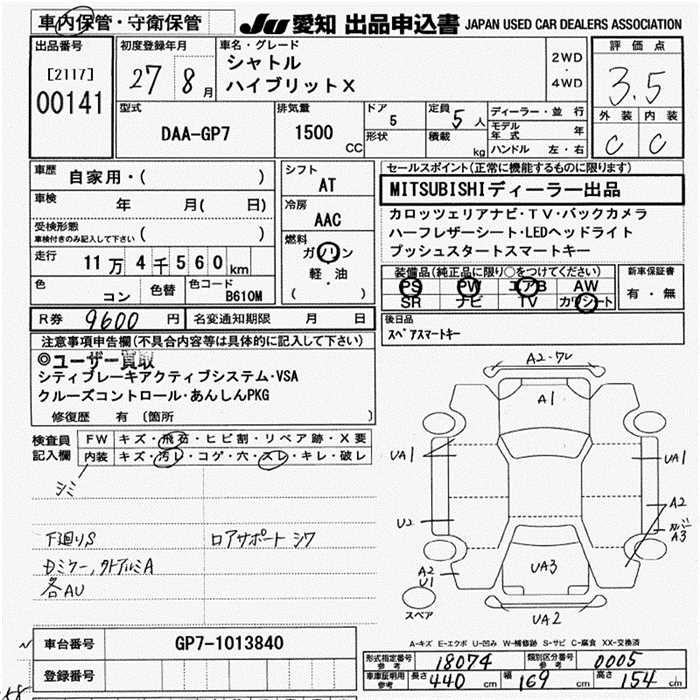 車内保管・守衛保管
JU 愛知 出品申込書 JAPAN USED CAR DEALERS ASSOCIATION
出品番号
[2117]
00141
初度登録年月
27 8月
車名・グレード
シャトル
ハイブリットX
2WD
・
4WD
評価点
3.5
外装 内装
C C
型式
DAA-GP7
排気量
1500 CC
ドア
5
形状
定員
5人
積載
kg
ディーラー・並行
モデル年式 年
ハンドル 左・右
車歴
自家用・( )
車検 年 月( 日)
受検形態
車検付きのみ記入して下さい ( )
走行 11万4千560km
色 コン 色替 色コード B610M
シフト
AT
冷房
AAC
燃料
ガソリン
軽・油
( )
セールスポイント(正常に機能するものに限ります)
MITSUBISHIディーラー出品
カロッツェリアナビ・TV・バックカメラ
ハーフレザーシート・LEDヘッドライト
プッシュスタートスマートキー
装備品(純正品に限り○をつけてください)
PS PW エアB AW
SR ナビ TV カワシート
新車保証書
有・無
R券 9600円 名変通知期限 月 日
後日品
スペアスマートキー
注意事項申告欄(不具合内容等は具体的に記入して下さい)
◎ユーザー買取
シティブレーキアクティブシステム・VSA
クルーズコントロール・あんしんPKG
修復歴 有 (箇所 )
検査員記入欄
FW キズ・飛石・ヒビ割・リペア跡・X要
内装 キズ・汚レ・コゲ・穴・スレ・キレ・破レ
シミ
下廻りS ロアサポート シワ
Dミラー, 外アルミA
各AU
A2-ワレ
A1
UA1
UA1
U2
A2
カバー
A3
A2
U1
UA3
スペア
UA2
A-キズ E-エクボ U-凹み W-補修跡 S-サビ C-腐食 XX-交換済
車台番号 GP7-1013840
登録番号
型式指定番号 参考 18074 類別区分番号 参考 0005
車庫証明用 参考 長さ 440 cm 幅 169 cm 高さ 154 cm